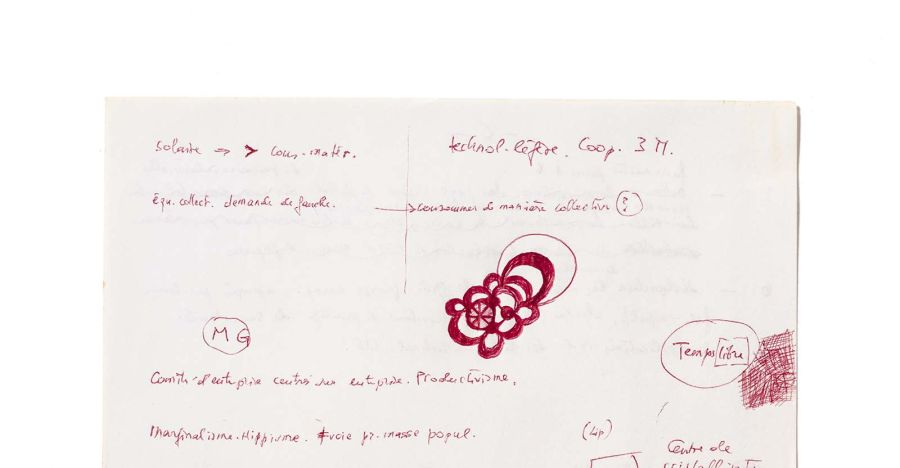 Solaire => > Cons. matér.
technol. légère. Coop. 3 M.
Équ. collect. demande de gauche.
→ consommer de manière collective (?)
M G
Temps libre
Comité d'entreprise centré sur entreprise. Productivisme.
Marginalisme. Hippisme. ≠ voie pr. masse popul.
(Lip)
Centre de